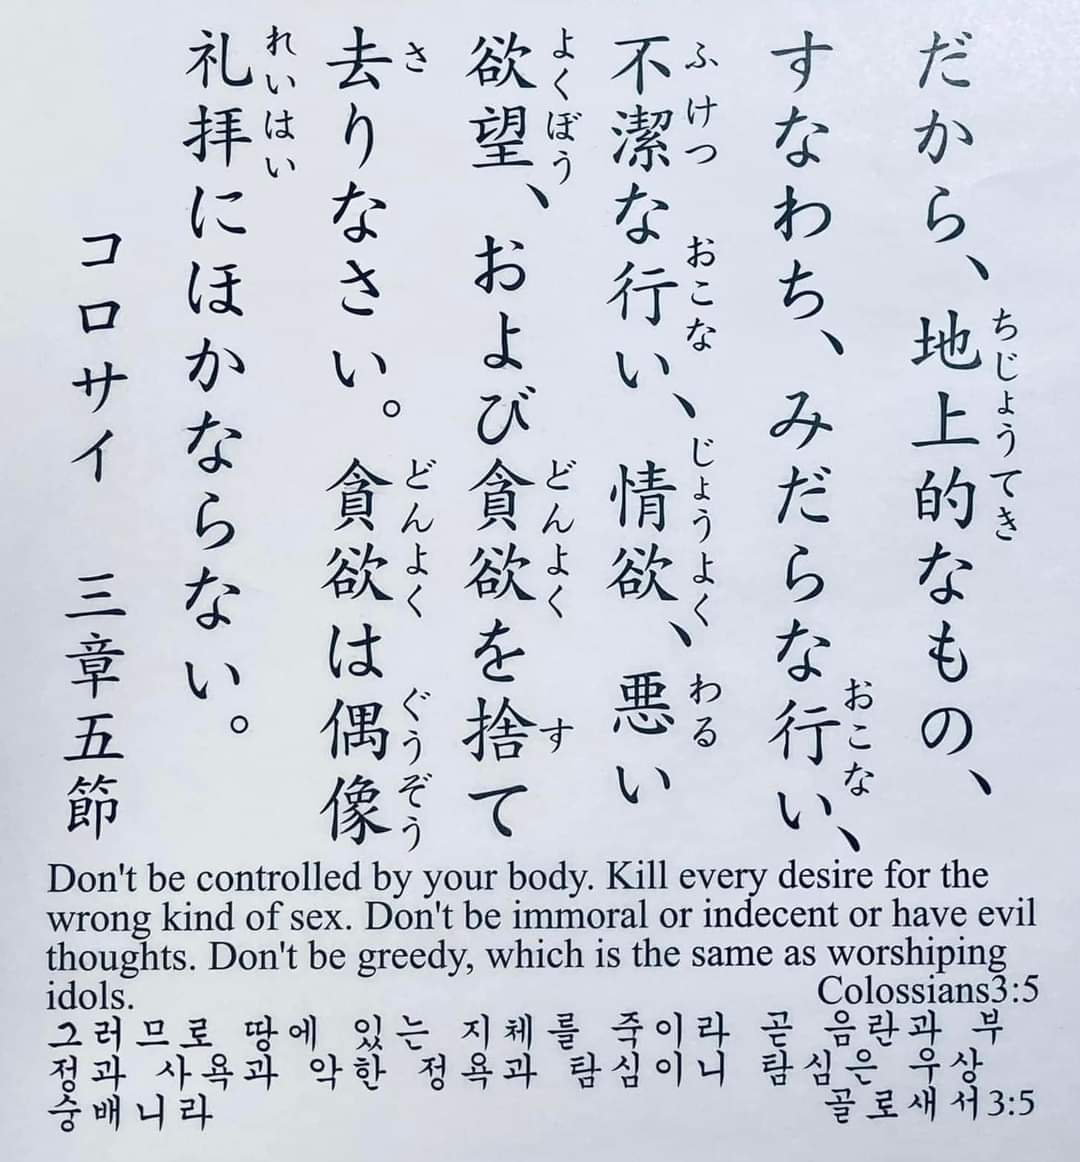 だから、地上的なもの、
すなわち、みだらな行い、
不潔な行い、情欲、悪い
欲望、および貪欲を捨て
去りなさい。貪欲は偶像
礼拝にほかならない。
コロサイ 三章五節
ちじょうてき
おこな
ふけつ おこな じょうよく わる
よくぼう どんよく す
さ どんよく ぐうぞう
れいはい
Don't be controlled by your body. Kill every desire for the
wrong kind of sex. Don't be immoral or indecent or have evil
thoughts. Don't be greedy, which is the same as worshiping
idols. Colossians3:5
그러므로 땅에 있는 지체를 죽이라 곧 음란과 부
정과 사욕과 악한 정욕과 탐심이니 탐심은 우상
숭배니라 골로새서3:5